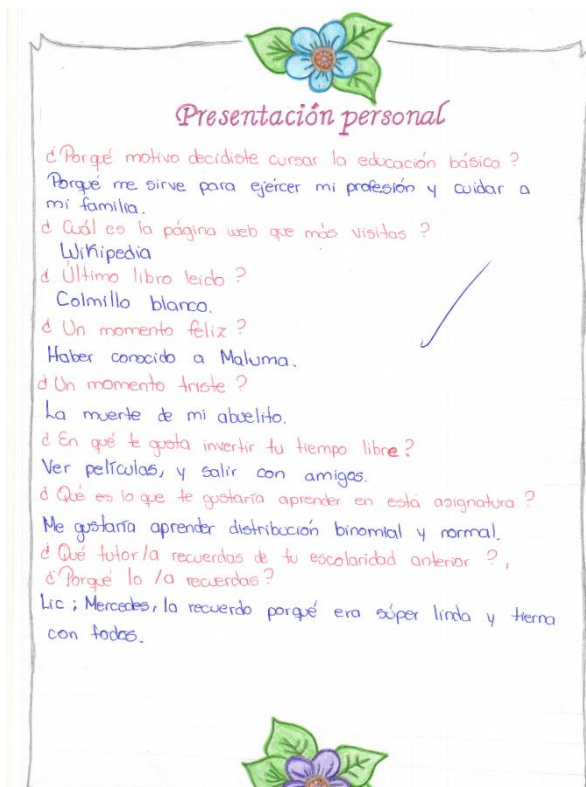 Presentación personal
¿Porqué motivo decidiste cursar la educación básica?
Porqué me sirve para ejercer mi profesión y cuidar a
mi familia.
¿Cuál es la página web que más visitas?
Wikipedia
¿Último libro leido?
Colmillo blanco.
¿Un momento feliz?
Haber conocido a Maluma.
¿Un momento triste?
La muerte de mi abuelito.
¿En qué te gusta invertir tu tiempo libre?
Ver películas, y salir con amigos.
¿Qué es lo que te gustaría aprender en está asignatura?
Me gustaría aprender distribución binomial y normal.
¿Qué tutor/a recuerdas de tu escolaridad anterior?,
¿Porqué lo/a recuerdas?
Lic; Mercedes, la recuerdo porqué era súper linda y tierna
con todos.